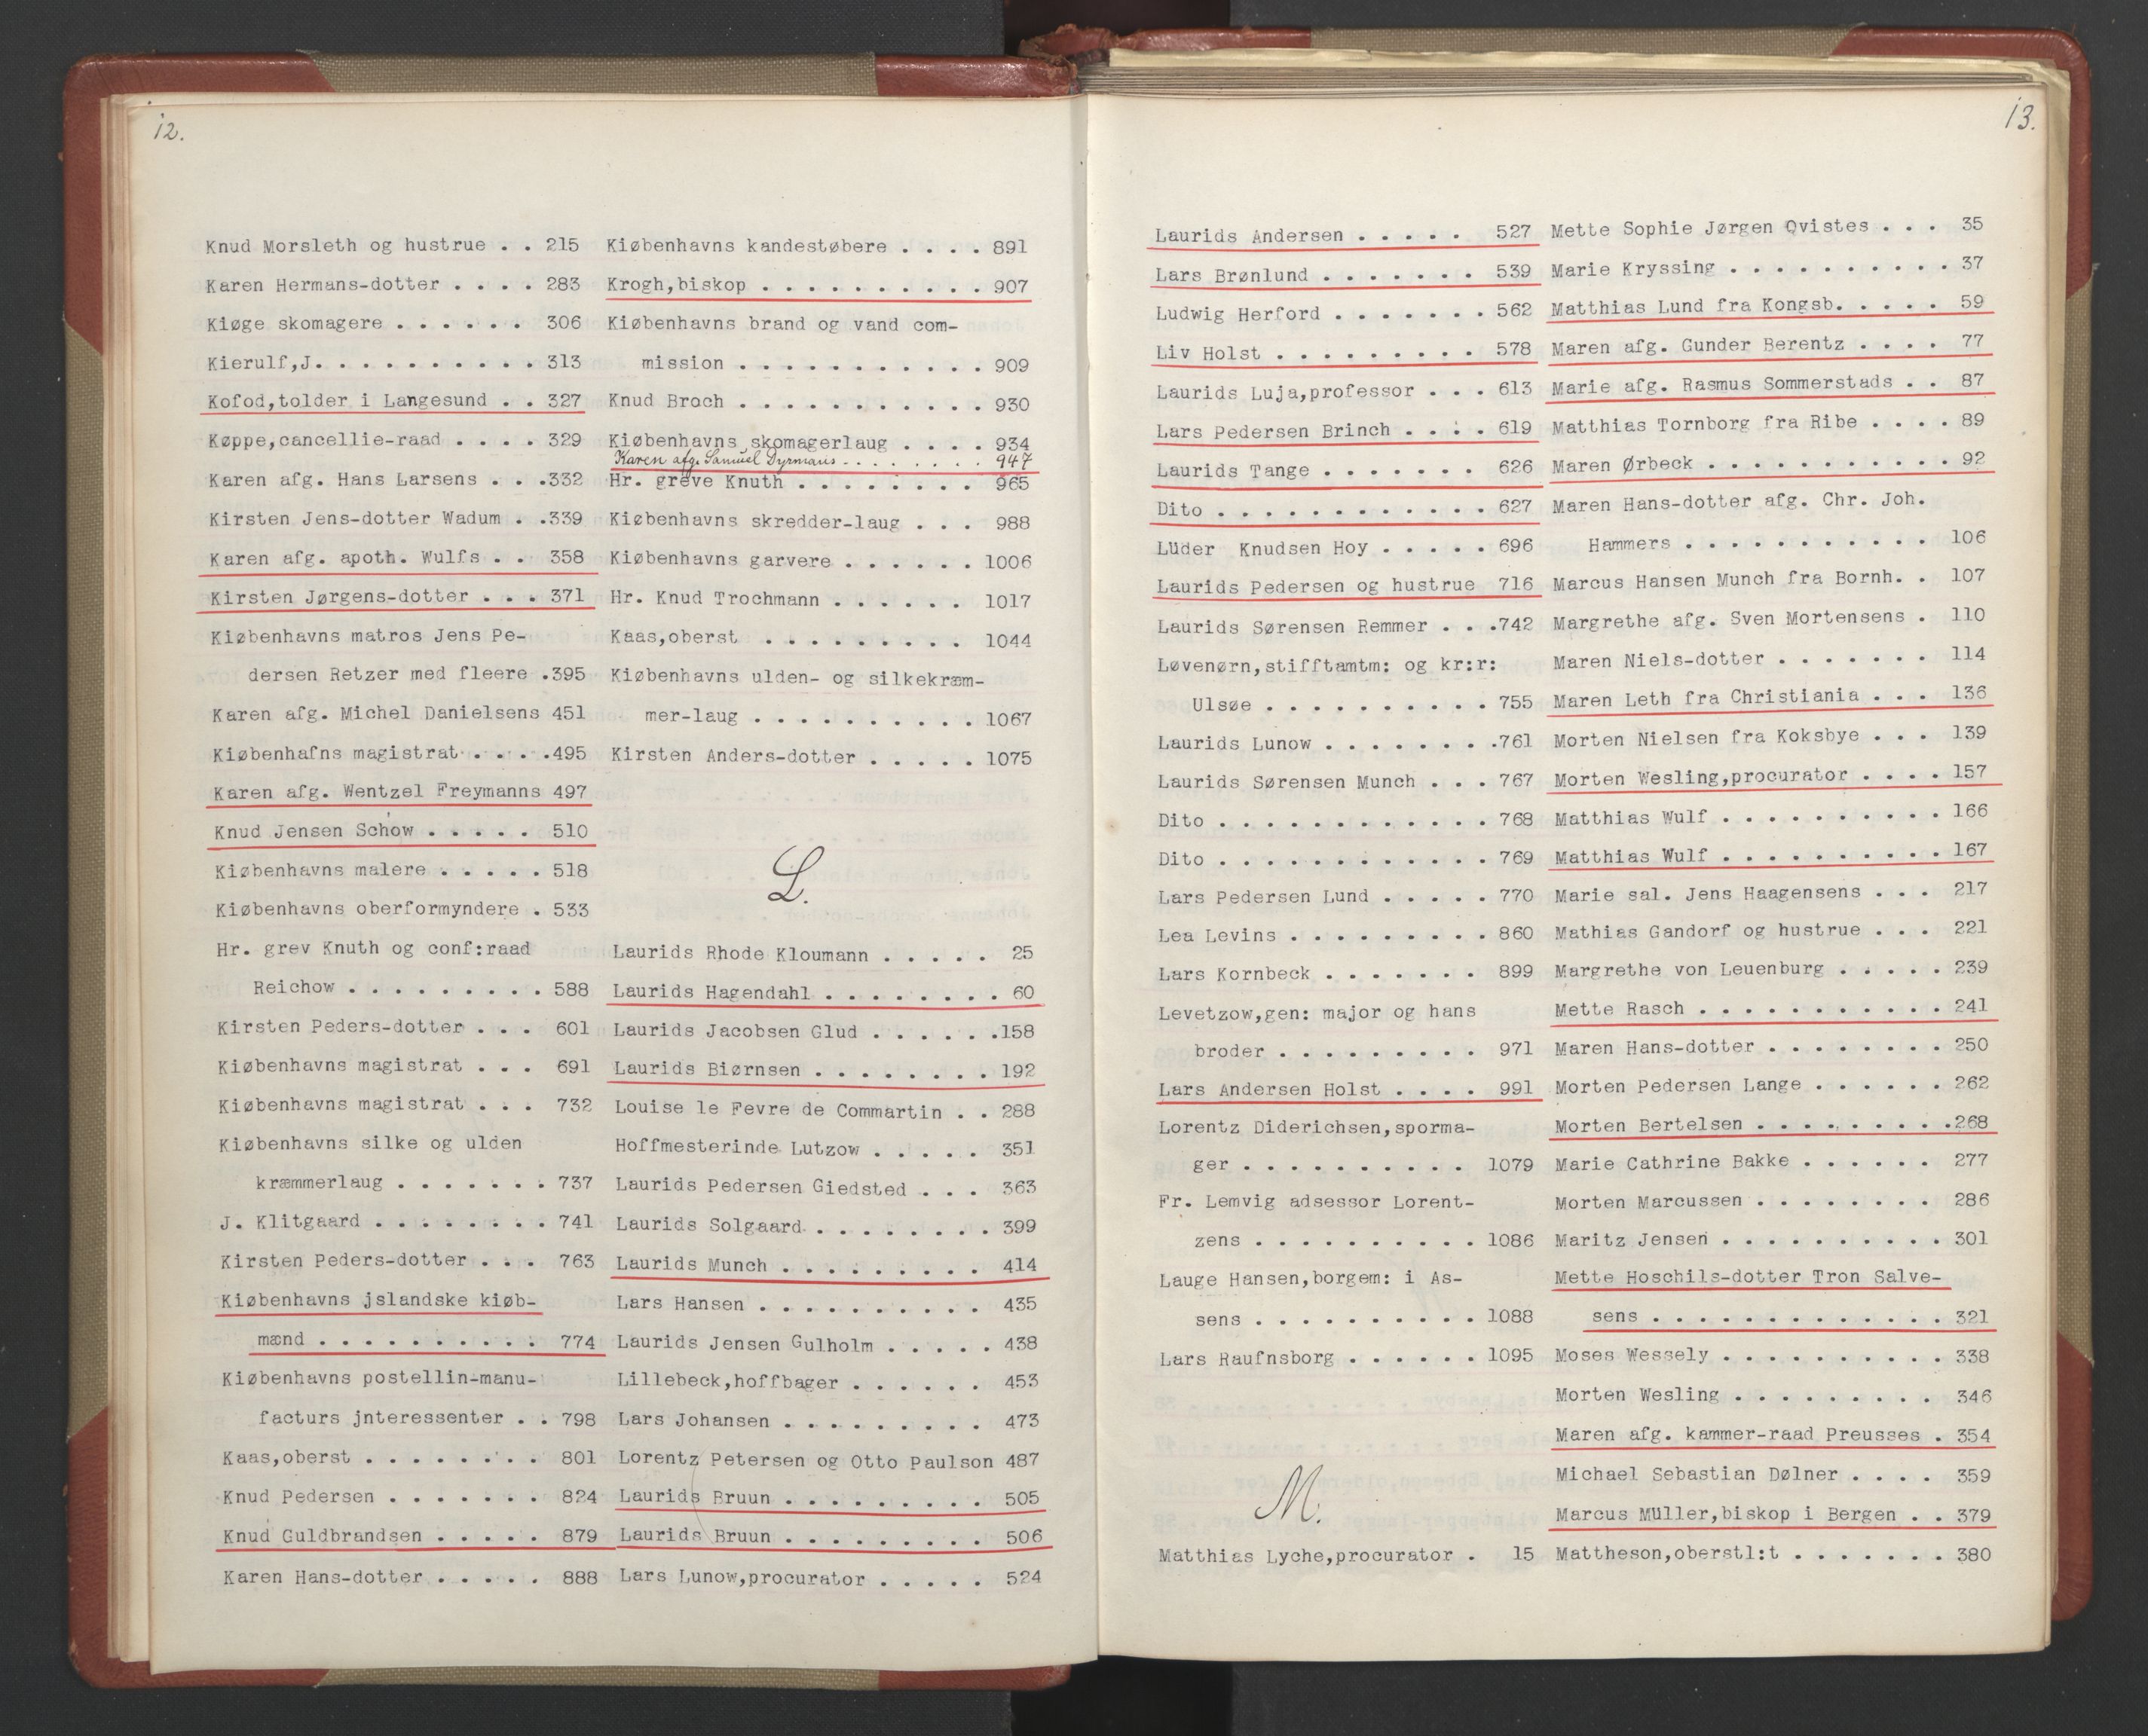 12.
Knud Morsleth og hustrue . . 215
Karen Hermans-dotter . . . . 283
Kiøge skomagere . . . . . . 306
Kierulf,J. . . . . . . . . . 313
Kofod,tolder i Langesund . . 327
Køppe,cancellie-raad . . . . 329
Karen afg. Hans Larsens . . .332
Kirsten Jens-dotter Wadum . .339
Karen afg. apoth. Wulfs . . 358
Kirsten Jørgens-dotter . . . 371
Kiøbenhavns matros Jens Pe-
dersen Retzer med fleere .395
Karen afg. Michel Danielsens 451
Kiøbenhafns magistrat . . . .495
Karen afg. Wentzel Freymanns 497
Knud Jensen Schow . . . . . 510
Kiøbenhavns malere . . . . . 518
Kiøbenhavns oberformyndere . 533
Hr. grev Knuth og conf:raad
Reichow . . . . . . . . . 588
Kirsten Peders-dotter . . . 601
Kiøbenhavns magistrat . . . 691
Kiøbenhavns magistrat . . . 732
Kiøbenhavns silke og ulden
kræmmerlaug . . . . . . . 737
J. Klitgaard . . . . . . . . 741
Kirsten Peders-dotter . . . 763
Kiøbenhavns jslandske kiøb-
mænd . . . . . . . . . . 774
Kiøbenhavns postellin-manu-
facturs jnteressenter . . 798
Kaas,oberst . . . . . . . . 801
Knud Pedersen . . . . . . . 824
Knud Guldbrandsen . . . . . 879
Karen Hans-dotter . . . . . 888
Kiøbenhavns kandestøbere . . . . 891
Krogh,biskop . . . . . . . . . . 907
Kiøbenhavns brand og vand com-
mission . . . . . . . . . . . 909
Knud Broch . . . . . . . . . . . 930
Kiøbenhavns skomagerlaug . . . . 934
Karen afg. Samuel Dyrmans . . . . . . . . 947
Hr. greve Knuth . . . . . . . . 965
Kiøbenhavns skredder-laug . . . 988
Kiøbenhavns garvere . . . . . . 1006
Hr. Knud Trochmann . . . . . . 1017
Kaas,oberst . . . . . . . . . 1044
Kiøbenhavns ulden- og silkekræm-
mer-laug . . . . . . . . . . 1067
Kirsten Anders-dotter . . . . . 1075
L.
Laurids Rhode Kloumann . . . . . 25
Laurids Hagendahl . . . . . . . . 60
Laurids Jacobsen Glud . . . . . .158
Laurids Biørnsen . . . . . . . . 192
Louise le Fevre de Commartin . . 288
Hoffmesterinde Lutzow . . . . . 351
Laurids Pedersen Giedsted . . . 363
Laurids Solgaard . . . . . . . . 399
Laurids Munch . . . . . . . . . 414
Lars Hansen . . . . . . . . . . 435
Laurids Jensen Gulholm . . . . . 438
Lillebeck,hoffbager . . . . . . 453
Lars Johansen . . . . . . . . . 473
Lorentz Petersen og Otto Paulson 487
Laurids Bruun . . . . . . . . . 505
Laurids Bruun . . . . . . . . . 506
Lars Lunow,procurator . . . . . 524
13.
Laurids Andersen . . . . . 527
Lars Brønlund . . . . . . . 539
Ludwig Herford . . . . . . . 562
Liv Holst . . . . . . . . . 578
Laurids Luja,professor . . . 613
Lars Pedersen Brinch . . . . 619
Laurids Tange . . . . . . . 626
Dito . . . . . . . . . . . . 627
Lüder Knudsen Hoy . . . . . 696
Laurids Pedersen og hustrue 716
Laurids Sørensen Remmer . . .742
Løvenørn,stifftamtm: og kr:r:
Ulsøe . . . . . . . . . . 755
Laurids Lunow . . . . . . . .761
Laurids Sørensen Munch . . . 767
Dito . . . . . . . . . . . . 768
Dito . . . . . . . . . . . . 769
Lars Pedersen Lund . . . . . 770
Lea Levins . . . . . . . . . 860
Lars Kornbeck . . . . . . . 899
Levetzow,gen: major og hans
broder . . . . . . . . . 971
Lars Andersen Holst . . . . 991
Lorentz Diderichsen,sporma-
ger . . . . . . . . . . 1079
Fr. Lemvig adsessor Lorent-
zens . . . . . . . . . . 1086
Lauge Hansen,borgem: i As-
sens . . . . . . . . . . 1088
Lars Raufnsborg . . . . . . 1095
M.
Matthias Lyche,procurator . 15
Mette Sophie Jørgen Qvistes . . . 35
Marie Kryssing . . . . . . . . . . 37
Matthias Lund fra Kongsb. . . . . 59
Maren afg. Gunder Berentz . . . . 77
Marie afg. Rasmus Sommerstads . . 87
Matthias Tornborg fra Ribe . . . . 89
Maren Ørbeck . . . . . . . . . . . 92
Maren Hans-dotter afg. Chr. Joh.
Hammers . . . . . . . . . . . 106
Marcus Hansen Munch fra Bornh. . 107
Margrethe afg. Sven Mortensens . 110
Maren Niels-dotter . . . . . . . 114
Maren Leth fra Christiania . . . 136
Morten Nielsen fra Koksbye . . . 139
Morten Wesling,procurator . . . . 157
Matthias Wulf . . . . . . . . . . 166
Matthias Wulf . . . . . . . . . . 167
Marie sal. Jens Haagensens . . . 217
Mathias Gandorf og hustrue . . . 221
Margrethe von Leuenburg . . . . . 239
Mette Rasch . . . . . . . . . . . 241
Maren Hans-dotter . . . . . . . . 250
Morten Pedersen Lange . . . . . . 262
Morten Bertelsen . . . . . . . . .268
Marie Cathrine Bakke . . . . . . 277
Morten Marcussen . . . . . . . . 286
Maritz Jensen . . . . . . . . . . 301
Mette Hoschils-dotter Tron Salve-
sens . . . . . . . . . . . . . 321
Moses Wessely . . . . . . . . . . 338
Morten Wesling . . . . . . . . . 346
Maren afg. kammer-raad Preusses . 354
Michael Sebastian Dølner . . . . 359
Marcus Müller,biskop i Bergen . . 379
Mattheson,oberstl:t . . . . . . . 380